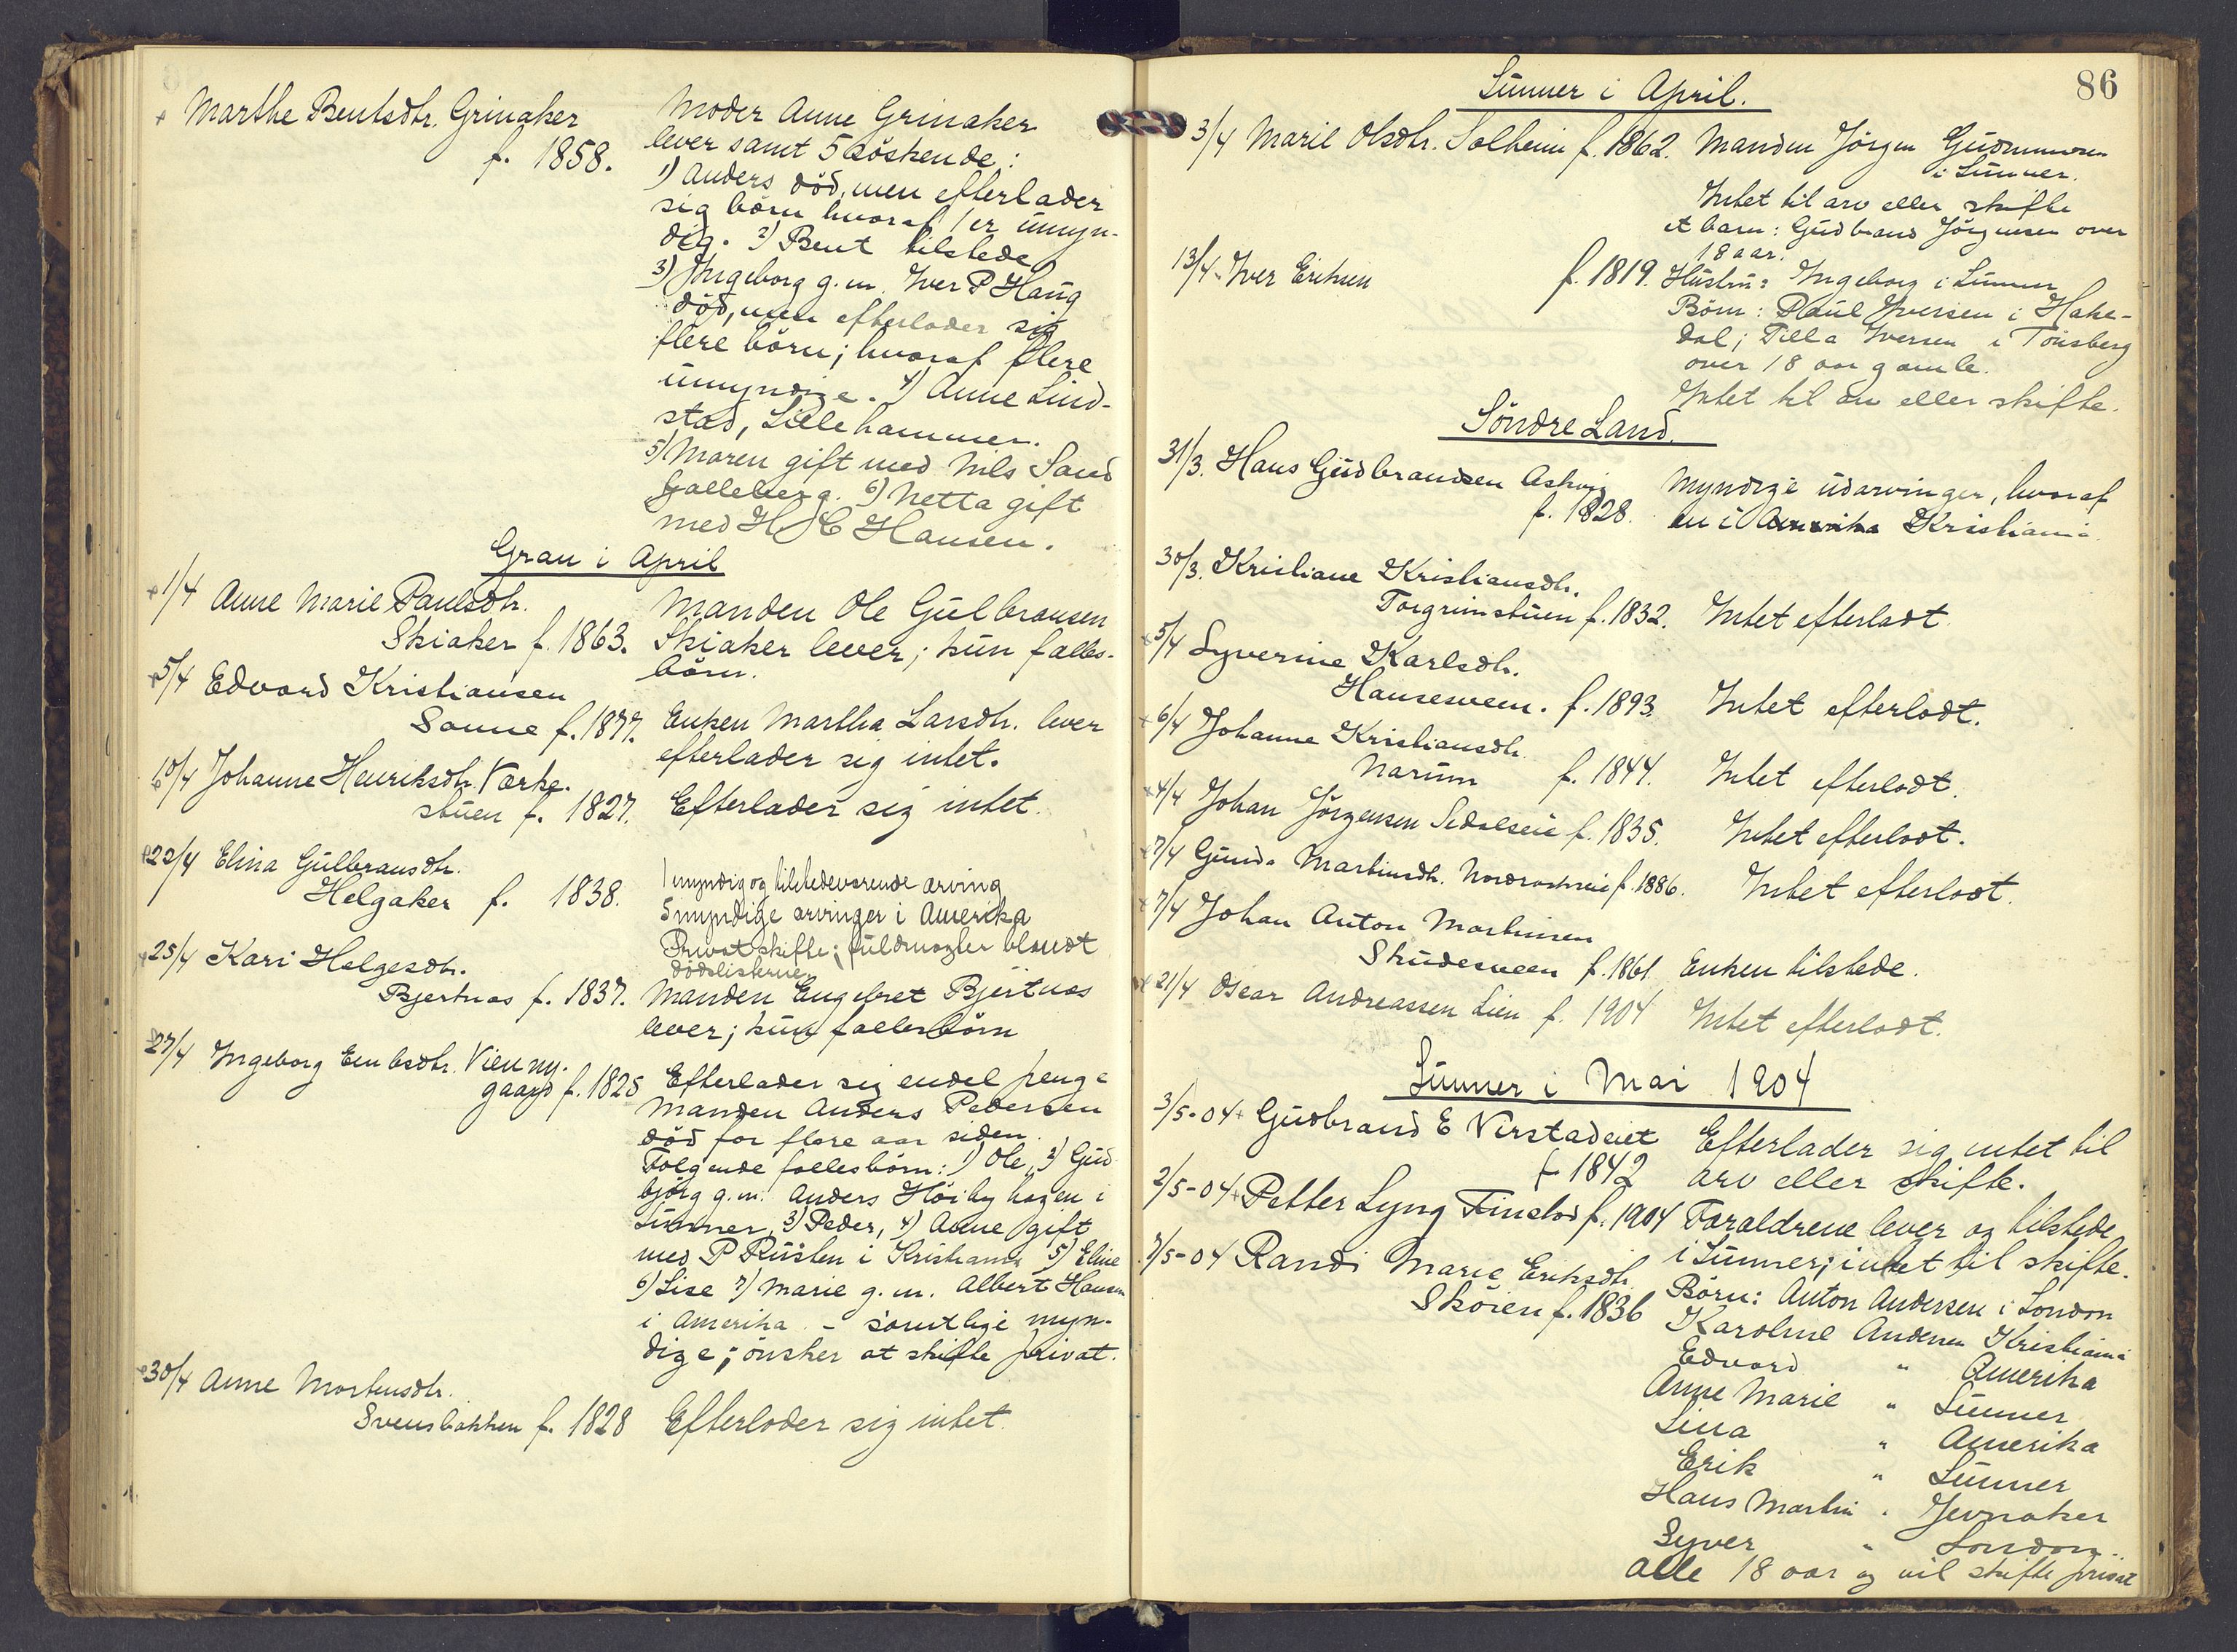 Marthe Bentsdtr. Grinaker
f. 1858.
Moder Anne Grinaker
lever samt 5 söskende:
1) Anders död, men efterlader
sig börn hvoraf 1 er umyn-
dig. 2) Bent tilstede
3) Ingeborg g.m. Iver P Haug
död, men efterlader sig
flere börn; hvoraf flere
umyndige. 4) Anne Lind-
stad, Lillehammer.
5) Maren gift med Nils Sand
Galleberg. 6) Netta gift
med H C Hansen.
Gran i April
1/4 Anne Marie Paulsdtr.
Skiaker f. 1863.
Manden Ole Gulbransen
Skiaker lever; kun fælles-
börn.
5/4 Edvard Kristiansen
Sanne f. 1877.
Enken Martha Larsdtr. lever
efterlader sig intet.
10/4 Johanne Henriksdtr. Værke-
stuen f. 1827.
Efterlader sig intet.
22/4 Elina Gulbransdtr.
Helgaker f. 1838.
1 myndig og tilstedeværende arving
5 myndige arvinger i Amerika
Privat skifte; fuldmagter blandt
dödslisterne
25/4 Kari Helgesdtr.
Bjertnæs f. 1837.
Manden Engebret Bjertnæs
lever; kun fællesbörn
27/4 Ingeborg Embsdtr. Vien ny-
gaard f. 1825
Efterlader sig endel penge
Manden Anders Pedersen
död for flere aar siden.
Følgende fællesbörn: 1) Ole, 2) Gud-
björg g.m. Anders Höibyhagen i
Lunner, 3) Peder, 4) Anne gift
med P Rusten i Kristiania 5) Eline
6) Lise 7) Marie g.m. Albert Hansen
i Amerika. - samtlige myn-
dige; önsker at skifte privat.
30/4 Anne Mortensdtr.
Svensbakken f. 1828
Efterlader sig intet.
86
Lunner i April.
3/4 Marie Olsdtr. Solheim f. 1862.
Manden Jörgen Gudmundsen
i Lunner.
Intet til arv eller skifte
et barn: Gudbrand Jörgensen over
18 aar.
13/4 Iver Eriksen f. 1819.
Hustru: Ingeborg i Lunner
Börn: Paul Iversen i Hake-
dal; Tilla Iversen i Tönsberg
over 18 aar gamle.
Intet til arv eller skifte.
Söndre Land.
31/3. Hans Gudbrandsen Askvig
f. 1828.
Myndige udarvinger, hvoraf
en i Amerika Kristiania.
30/3. Kristiane Kristiansdtr.
Torgrimstuen f. 1832. Intet efterladt.
5/4 Syverine Karlsdtr.
Hansesveen. f. 1893. Intet efterladt.
6/4 Johanne Kristiansdtr.
Narum f. 1844. Intet efterladt.
4/4 Johan Jörgensen Sedalseie f. 1835. Intet efterladt.
7/4 Gunda Martinsdtr. f. 1886. Intet efterladt.
7/4 Johan Anton Martinsen
Skudesveen f. 1861. Enken tilstede.
21/4 Oscar Andreassen Lien f. 1904 Intet efterladt.
Lunner i Mai 1904
3/5-04 Gudbrand E Virstadeiet
f. 1842
Efterlader sig intet til
arv eller skifte.
2/5-04 Petter Lyng Finstad f. 1904
Forældrene lever og tilstede
i Lunner; intet til skifte.
7/5-04 Randi Marie Eriksdtr.
Skören f. 1836
Börn: Anton Andersen i London
Karoline Andersen Kristiania
Edvard " Amerika
Anne Marie " Lunner
Lina " Amerika
Erik " Lunner
Hans Martin " Jevnaker
Syver " London
Alle 18 aar og vil skifte privat